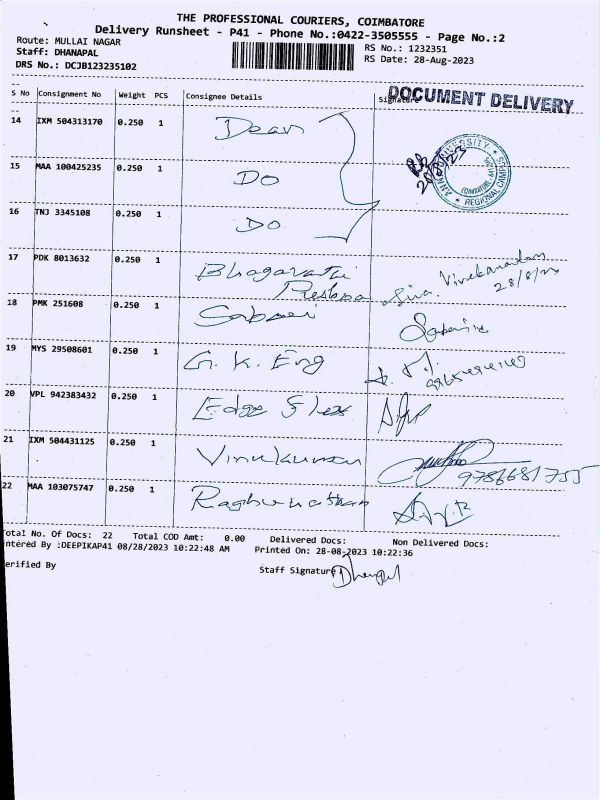 THE PROFESSIONAL COURIERS, COIMBATORE
Delivery Runsheet - P41 - Phone No.:0422-3505555 - Page No.:2
Route: MULLAI NAGAR
RS No.: 1232351
Staff: DHANAPAL
RS Date: 28-Aug-2023
DRS No.: DCJB123235102
S No Consignment No Weight PCS Consignee Details Signature
DOCUMENT DELIVERY
14 IXM 504313170 0.250 1 Dean
15 MAA 100425235 0.250 1 DO
16 TNJ 3345108 0.250 1 DO
UNIVERSITY
REGIONAL CAMPUS
COIMBATORE
17 PDK 8013632 0.250 1 Bhagavathi
Vivekanandan
28/8/23
18 PMK 251608 0.250 1
19 MYS 29508601 0.250 1 G. K. Eng
20 VPL 942383432 0.250 1 Edge Flex
21 IXM 504431125 0.250 1 Vinukumar
22 MAA 103075747 0.250 1 Raghunathan
Total No. Of Docs: 22 Total COD Amt: 0.00 Delivered Docs: Non Delivered Docs:
ntered By :DEEPIKAP41 08/28/2023 10:22:48 AM Printed On: 28-08-2023 10:22:36
erified By
Staff Signature